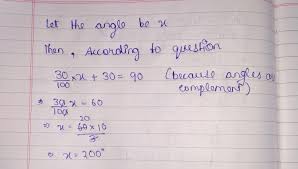 Let the angle be x
Then, According to question
30/100 x x + 30 = 90 (because angles a
complement)
⇒ 30/100 x = 60
20
⇒ x = 60 x 10 / 3
⇒ x = 200°